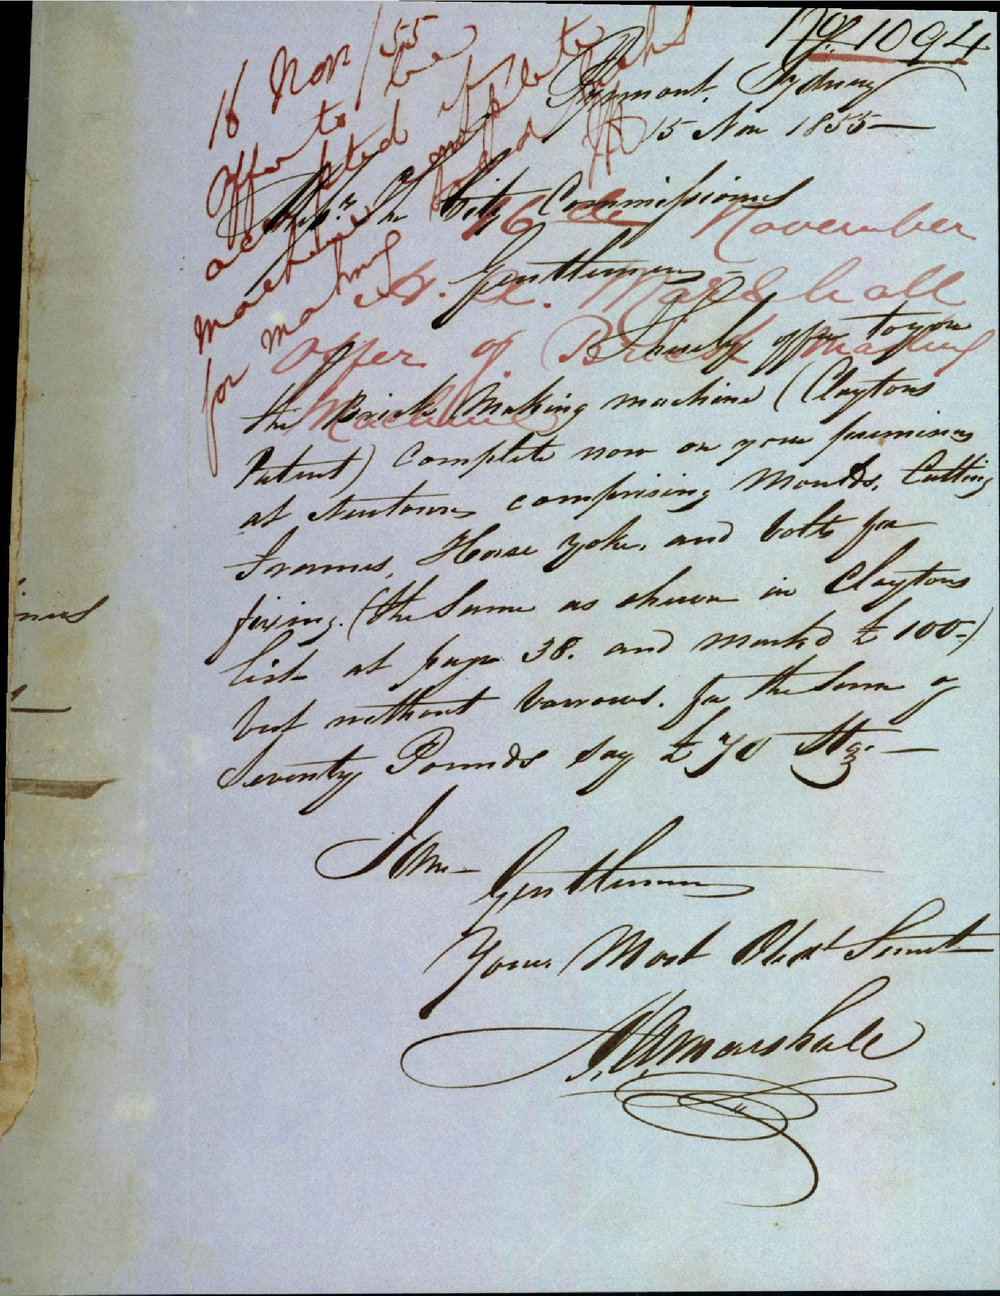 No 1094
16 Nov /55
Offer to be
accepted if
machine complete
for making
Pyrmont, Sydney
15 Nov 1855
The City Commissioners
16th November
Gentlemen
Marshall
Offer of Brick Making
Machine
I hereby offer to you
the Brick Making machine (Claytons
Patent) complete now on your premises
at Newtown comprising Moulds, Cutting
Frames, Horse yoke, and bolts for
fixing. (the same as shewn in Claytons
list at page 38. and marked £100-)
but without barrows. for the Sum of
Seventy Pounds say £70 Stg:
I am
Gentlemen
Your Most Obedt Servt
Marshall